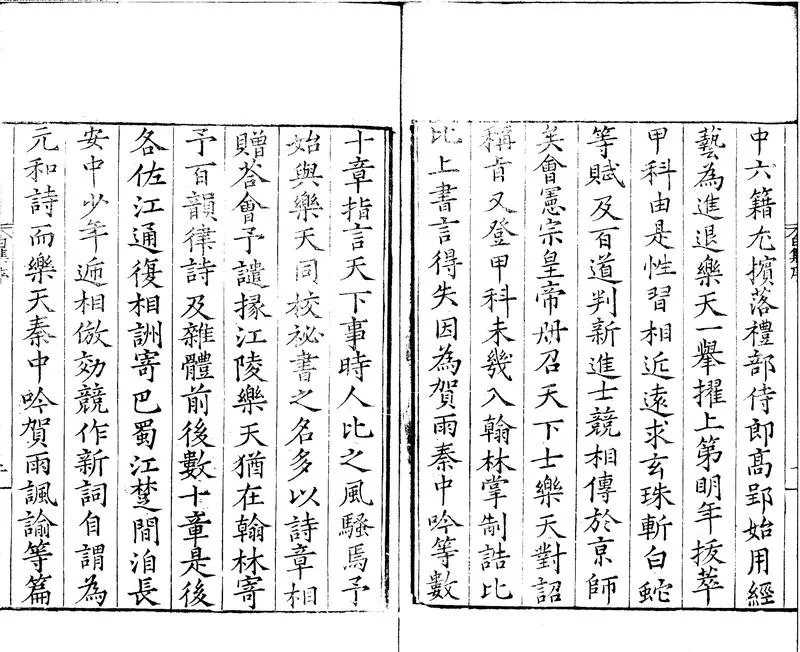 中六籍尢擯落禮部侍郎高郢始用經
藝為進退樂天一舉擢上第明年拔萃
甲科由是性習相近遠求玄珠斬白蛇
等賦及百道判新進士競相傳於京師
矣會憲宗皇帝冊召天下士樂天對詔
稱旨又登甲科未幾入翰林掌制誥比
比上書言得失因為賀雨秦中吟等數
十章指言天下事時人比之風騷焉予
始與樂天同校祕書之名多以詩章相
贈荅會予譴掾江陵樂天猶在翰林寄
予百韻律詩及雜體前後數十章是後
各佐江通復相詶寄巴蜀江楚間洎長
安中少年遞相倣効競作新詞自謂為
元和詩而樂天秦中吟賀雨諷諭等篇